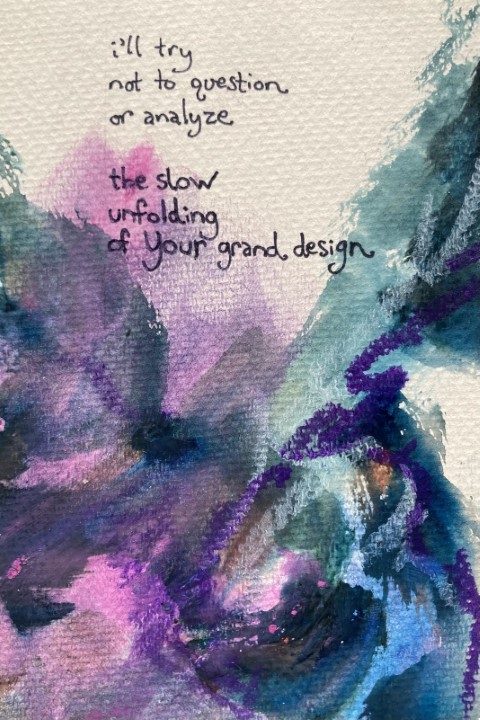 i'll try
not to question
or analyze
the slow
unfolding
of Your grand design